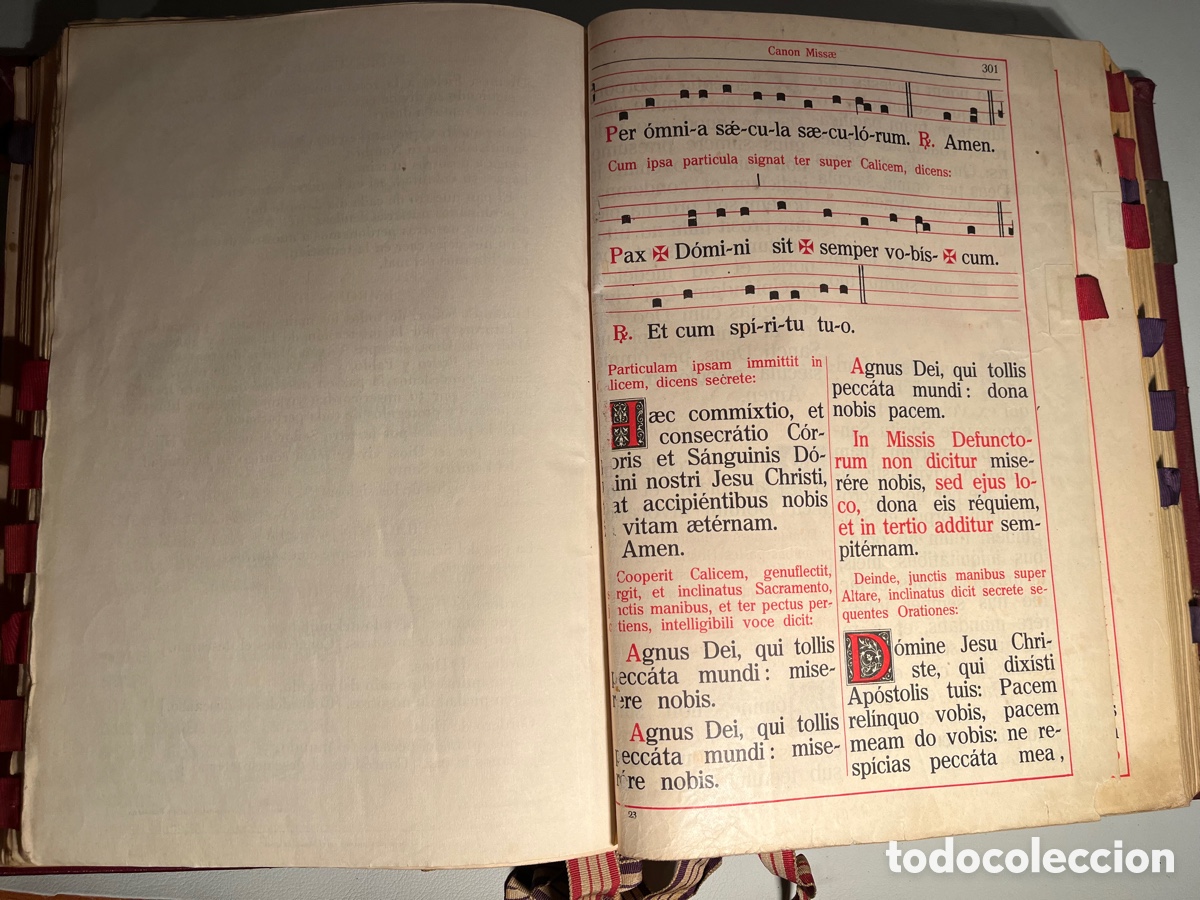 Canon Missæ
301
Per ómni-a sǽ-cu-la sæ-cu-ló-rum. ℟. Amen.
Cum ipsa particula signat ter super Calicem, dicens:
Pax ✠ Dómi-ni sit ✠ semper vo-bís- ✠ cum.
℟. Et cum spí-ri-tu tu-o.
Particulam ipsam immittit in
licem, dicens secréte:
Hæc commíxtio, et
consecrátio Cór-
oris et Sánguinis Dó-
ini nostri Jesu Christi,
at accipiéntibus nobis
vitam ætérnam.
Amen.
Cooperit Calicem, genuflectit,
rgit, et inclinatus Sacramento,
nctis manibus, et ter pectus per-
tiens, intelligibili voce dicit:
Agnus Dei, qui tollis
eccáta mundi: mise-
re nobis.
Agnus Dei, qui tollis
eccáta mundi: mise-
re nobis.
23
Agnus Dei, qui tollis
peccáta mundi: dona
nobis pacem.
In Missis Defuncto-
rum non dicitur mise-
rére nobis, sed ejus lo-
co, dona eis réquiem,
et in tertio additur sem-
pitérnam.
Deinde, junctis manibus super
Altare, inclinatus dicit secrete se-
quentes Orationes:
Dómine Jesu Chri-
ste, qui dixísti
Apóstolis tuis: Pacem
relínquo vobis, pacem
meam do vobis: ne re-
spícias peccáta mea,
todocoleccion